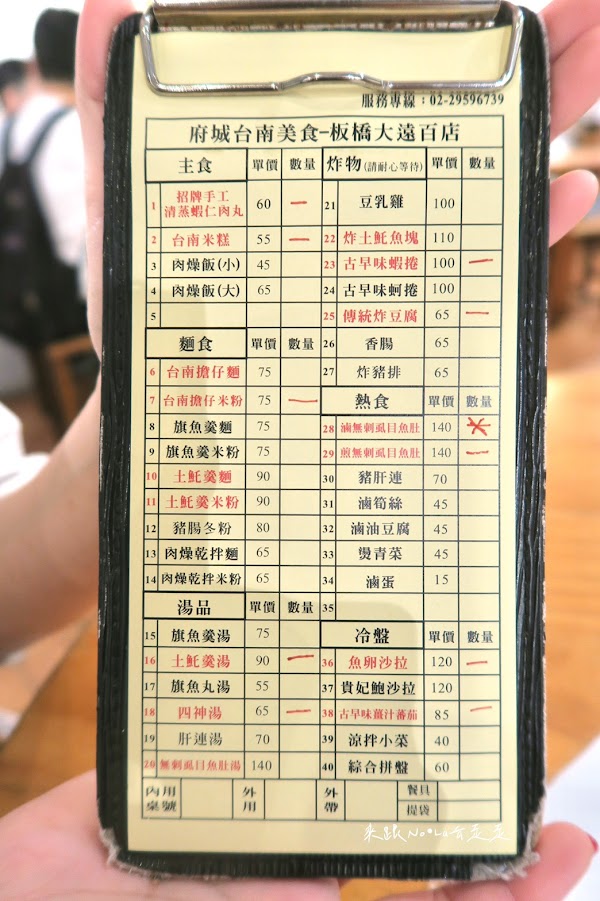 服務專線：02-29596739
府城台南美食-板橋大遠百店
主食 單價 數量
1 招牌手工清蒸蝦仁肉丸 60 一
2 台南米糕 55 一
3 肉燥飯(小) 45
4 肉燥飯(大) 65
5
麵食 單價 數量
6 台南擔仔麵 75
7 台南擔仔米粉 75 一
8 旗魚羹麵 75
9 旗魚羹米粉 75
10 土魠羹麵 90
11 土魠羹米粉 90
12 豬腸冬粉 80
13 肉燥乾拌麵 65
14 肉燥乾拌米粉 65
湯品 單價 數量
15 旗魚羹湯 75
16 土魠羹湯 90 一
17 旗魚丸湯 55
18 四神湯 65 一
19 肝連湯 70
20 無刺虱目魚肚湯 140
炸物(請耐心等待) 單價 數量
21 豆乳雞 100
22 炸土魠魚塊 110
23 古早味蝦捲 100 一
24 古早味蚵捲 100
25 傳統炸豆腐 65 一
26 香腸 65
27 炸豬排 65
熱食 單價 數量
28 滷無刺虱目魚肚 140
29 煎無刺虱目魚肚 140 一
30 豬肝連 70
31 滷筍絲 45
32 滷油豆腐 45
33 燙青菜 45
34 滷蛋 15
35
冷盤 單價 數量
36 魚卵沙拉 120 一
37 貴妃鮑沙拉 120
38 古早味薑汁蕃茄 85 一
39 涼拌小菜 40
40 綜合拼盤 60
內用桌號 外用 外帶 餐具
提袋